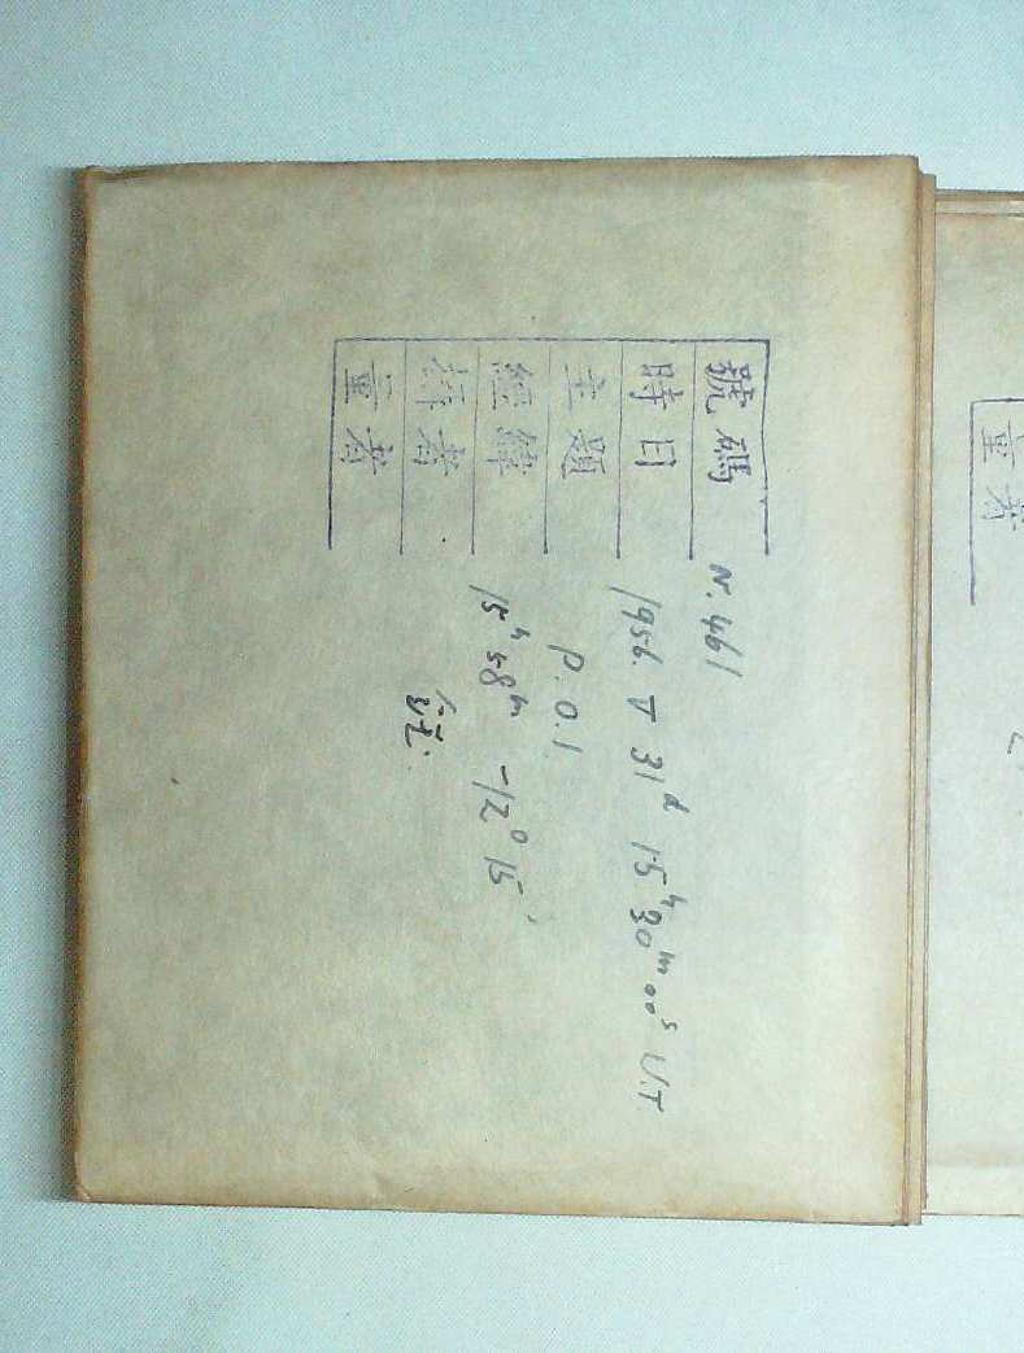 號碼 N. 461
時日 1956. V 31d 15h 30m 00s U.T
主題 P.O.1.
經緯 15h 58m -12° 15'
者
量者
量者